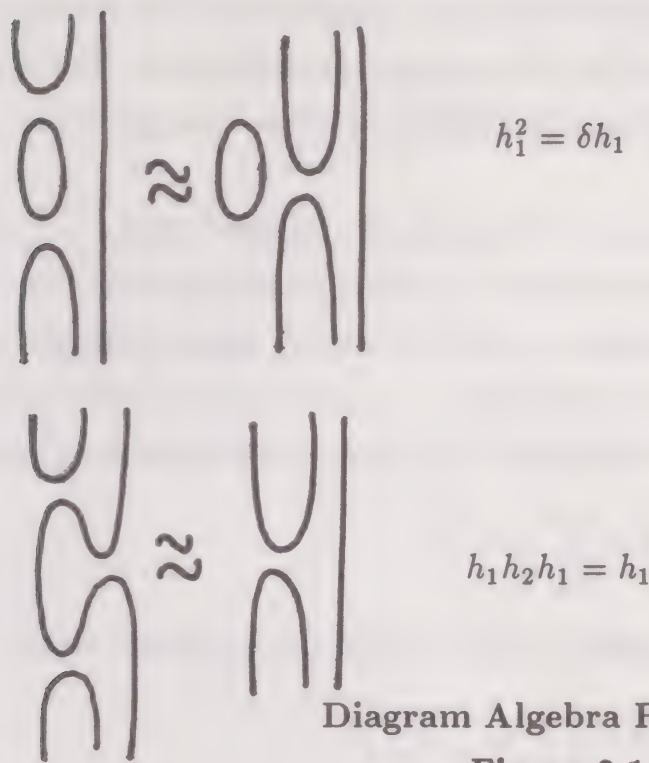 ≈
h₁² = δh₁
≈
h₁h₂h₁ = h₁
Diagram Algebra